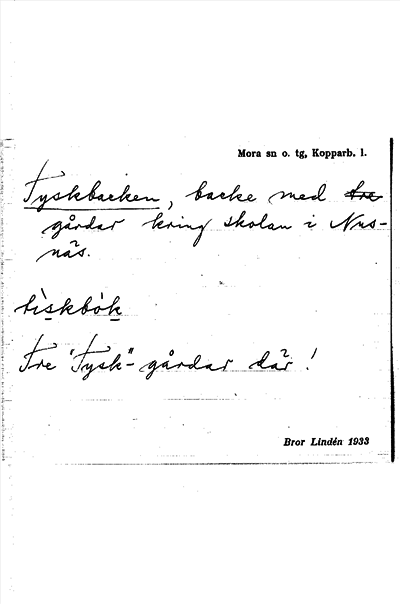 Mora sn o. tg, Kopparb. l.
Tyskbacken, backe med tre
gårdar kring skolan i Nus-
näs.
tìskbòk
Tre "Tysk"-gårdar där!
Bror Lindén 1933